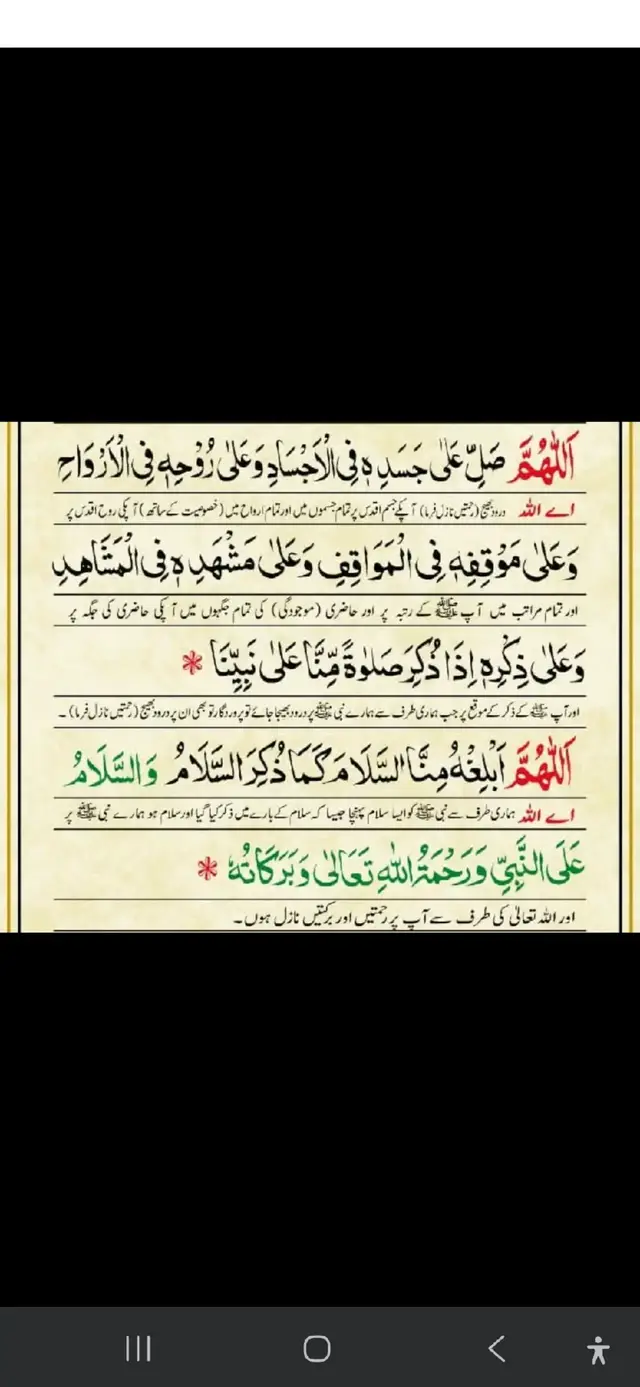 اَللّٰهُمَّ صَلِّ عَلٰى جَسَدِهٖ فِى الْاَجْسَادِ وَعَلٰى رُوْحِهٖ فِى الْاَرْوَاحِ
اے اللہ درود بھیج (رحمتیں نازل فرما) آپکے جسم اقدس پر تمام جسموں میں اور تمام ارواح میں (خصوصیت کے ساتھ) آپکی روح اقدس پر
وَعَلٰى مَوْقِفِهٖ فِى الْمَوَاقِفِ وَعَلٰى مَشْهَدِهٖ فِى الْمَشَاهِدِ
اور تمام مراتب میں آپ ﷺ کے رتبہ پر اور حاضری (موجودگی) کی تمام جگہوں میں آپکی حاضری کی جگہ پر
وَعَلٰى ذِكْرِهٖ اِذَا ذُكِرَ صَلٰوةً مِّنَّا عَلٰى نَبِيِّنَا *
اور آپ ﷺ کے ذکر کے موقع پر جب ہماری طرف سے ہمارے نبی ﷺ پر درود بھیجا جائے تو پروردگار تو بھی ان پر درود بھیج (رحمتیں نازل فرما)۔
اَللّٰهُمَّ اَبْلِغْهُ مِنَّا السَّلَامَ كَمَا ذُكِرَ السَّلَامُ وَالسَّلَامُ
اے اللہ ہماری طرف سے نبی ﷺ کو ایسا سلام پہنچا جیسا کہ سلام کے بارے میں ذکر کیا گیا اور سلام ہو ہمارے نبی ﷺ پر
عَلَى النَّبِيِّ وَرَحْمَةُ اللهِ تَعَالٰى وَبَرَكَاتُهٗ *
اور اللہ تعالیٰ کی طرف سے آپ پر رحمتیں اور برکتیں نازل ہوں۔